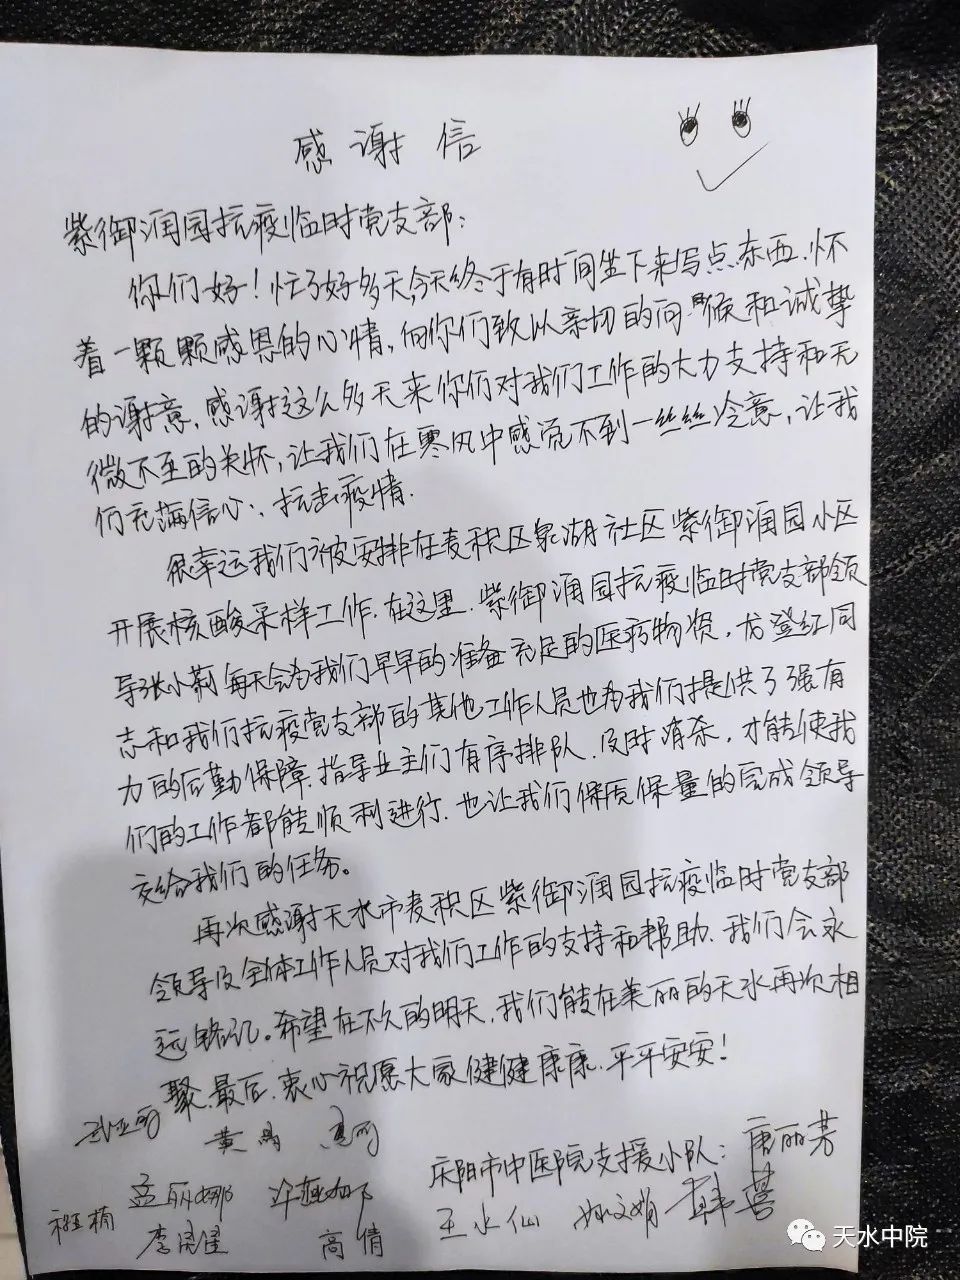 感谢信
紫御润园抗疫临时党支部：
你们好！忙了好多天,今天终于有时间坐下来写点东西.怀
着一颗颗感恩的心情,向你们致以亲切的问候和诚挚
的谢意,感谢这么多天来你们对我们工作的大力支持和无
微不至的关怀,让我们在寒风中感觉不到一丝丝冷意,让我
们充满信心,抗击疫情.
很幸运我们被安排在麦积区泉湖社区紫御润园小区
开展核酸采样工作.在这里.紫御润园抗疫临时党支部领
导张小莉每天会为我们早早的准备充足的医疗物资,龙登红同
志和我们抗疫党支部的其他工作人员也为我们提供了强有
力的后勤保障.指导业主们有序排队.及时消杀,才能使我
们的工作都能顺利进行.也让我们保质保量的完成领导
交给我们的任务。
再次感谢天水市麦积区紫御润园抗疫临时党支部
领导及全体工作人员对我们工作的支持和帮助.我们会永
远铭记。希望在不久的明天,我们能在美丽的天水再次相
聚.最后,衷心祝愿大家健健康康.平平安安！
庆阳市中医院支援小队：唐丽芳
孟丽娜
王水仙
高倩
天水中院